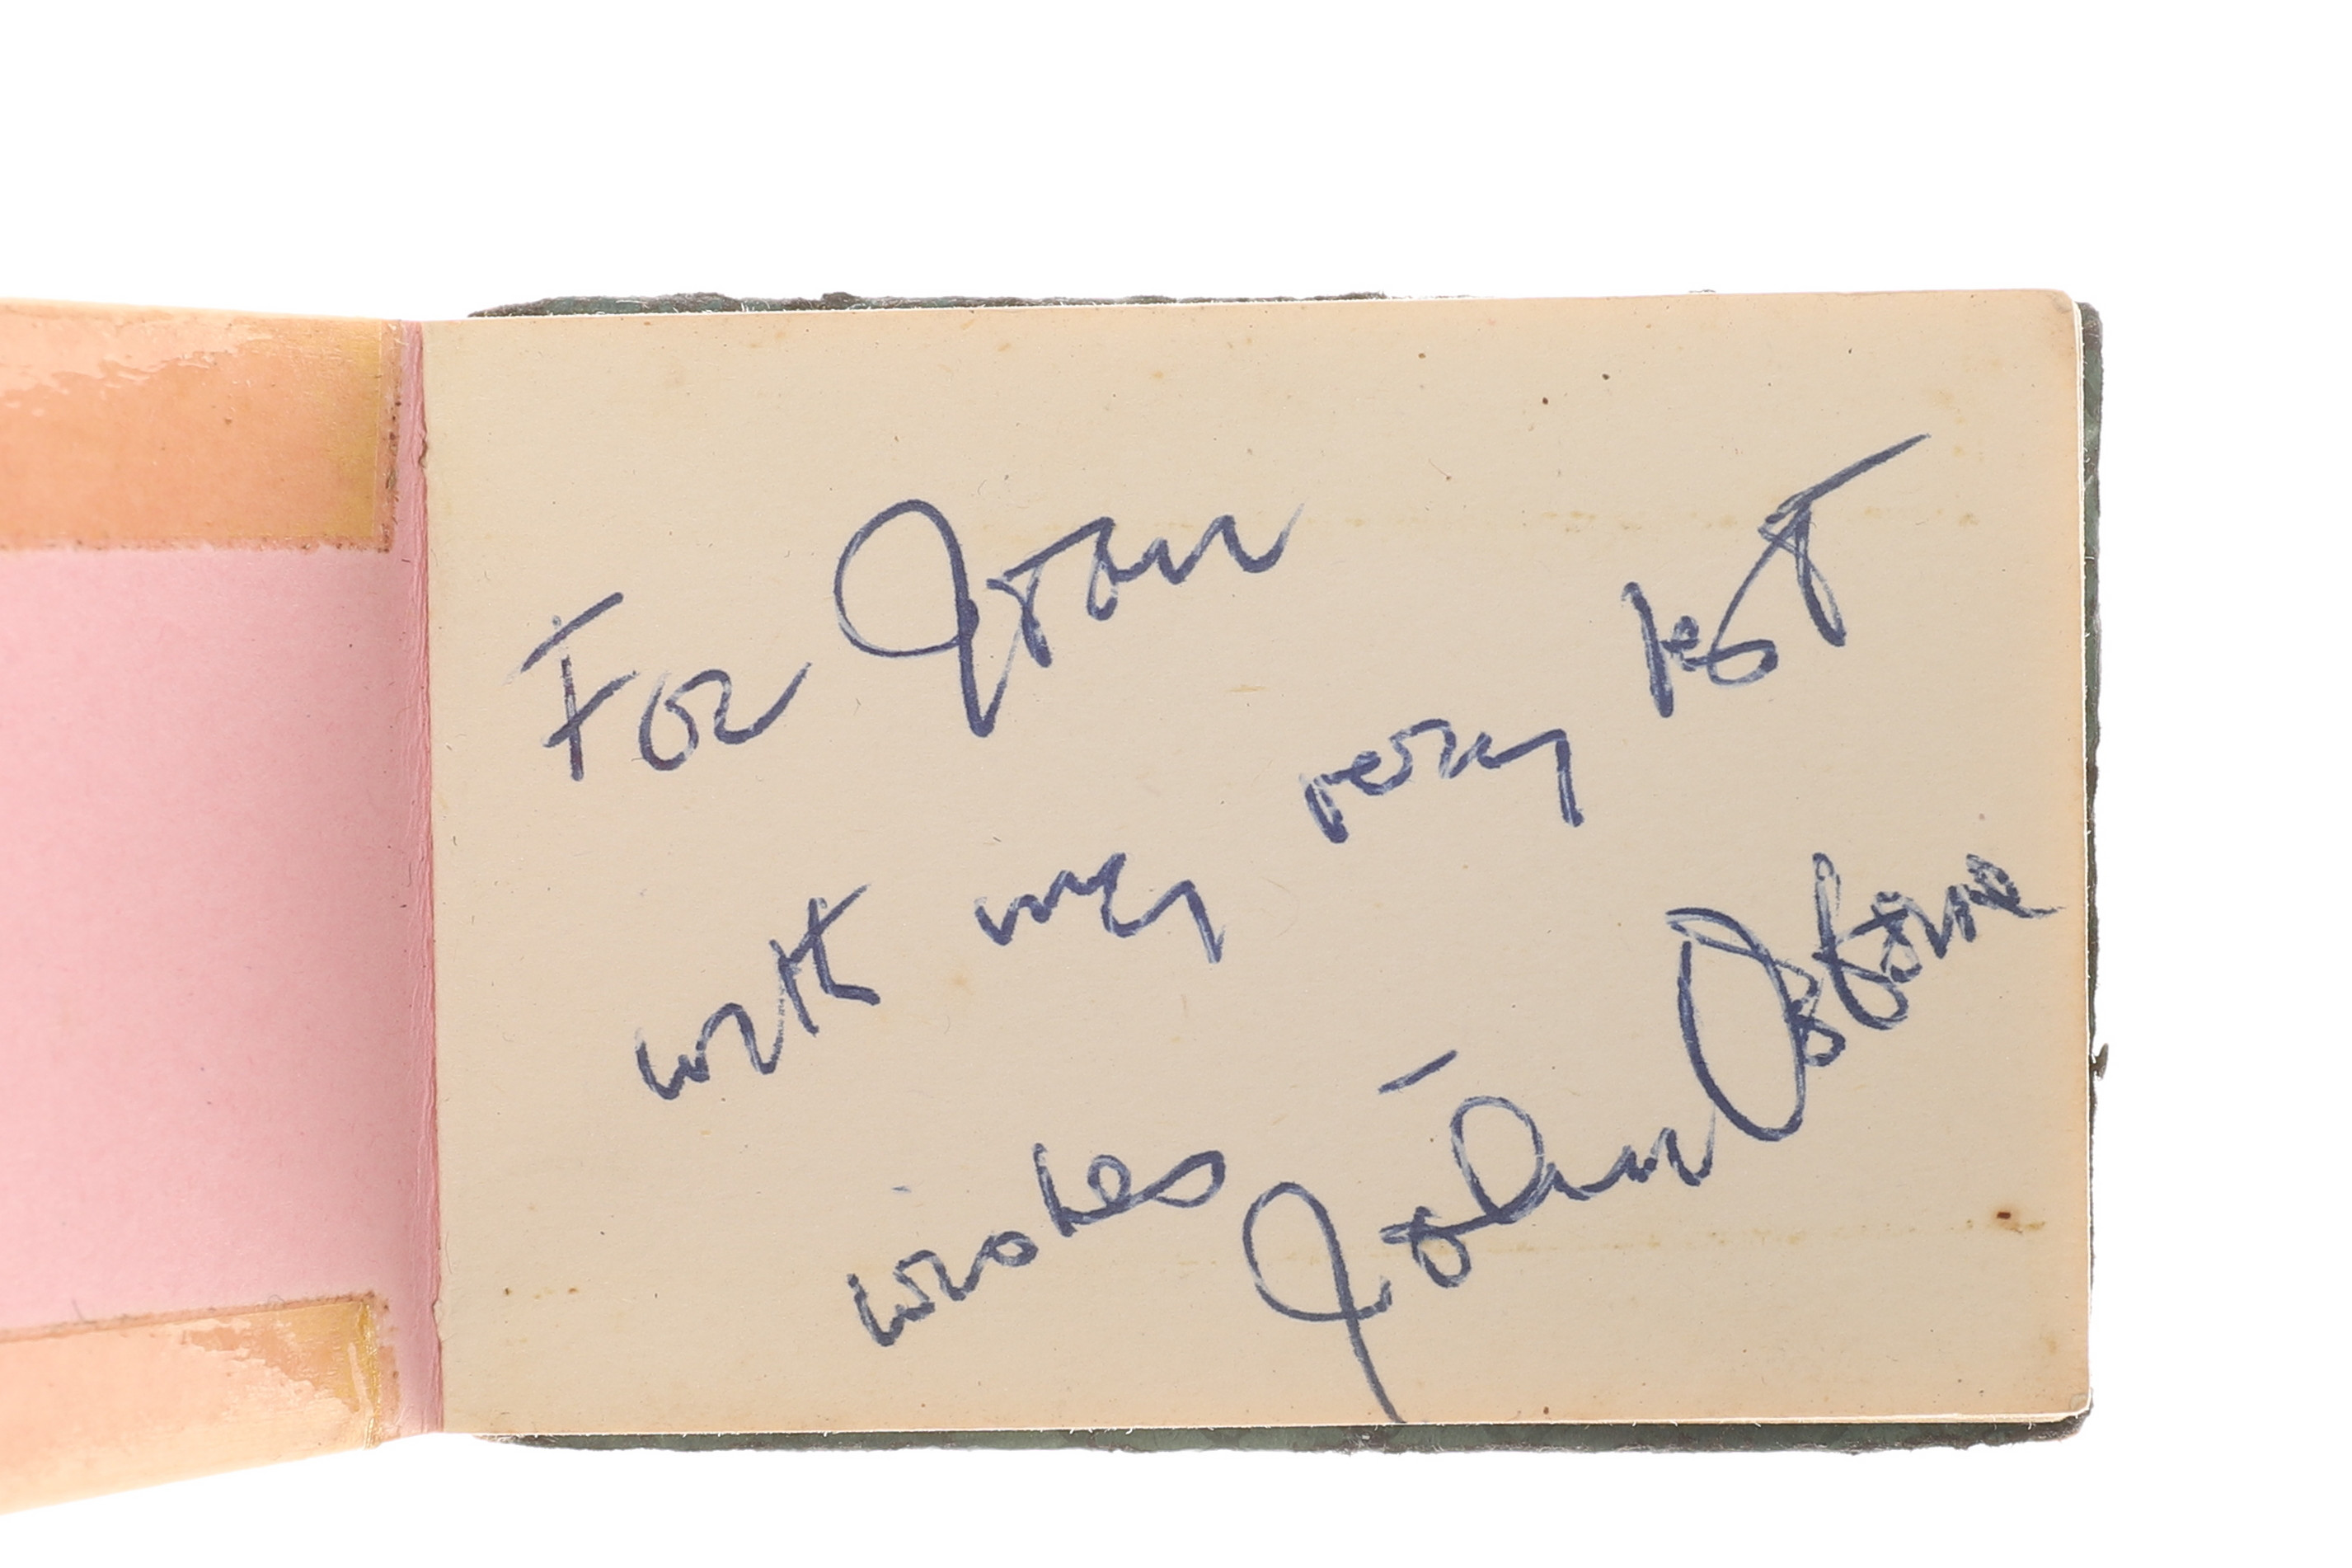 For Joan
with my very best
wishes –
John Osborne